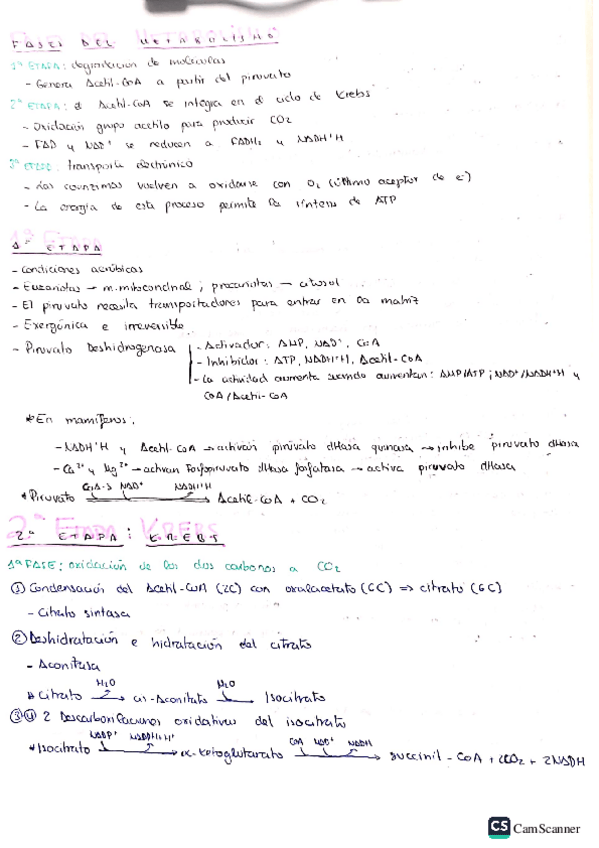 FASES DEL METABOLISMO
1ª ETAPA: degradación de moléculas
- Genera Acetil-CoA a partir del piruvato
2ª ETAPA: el Acetil-CoA se integra en el ciclo de Krebs
- Oxidación grupo acetilo para producir CO2
- FAD y NAD+ se reducen a FADH2 y NADH+H
3ª ETAPA: transporte electrónico
- Las coenzimas vuelven a oxidarse con O2 (último aceptor de e-)
- La energía de este proceso permite la síntesis de ATP
1ª ETAPA
- Condiciones aeróbicas
- Eucariotas → m.mitocondrial ; procariotas → citosol
- El piruvato necesita transportadores para entrar en la matriz
- Exergónica e irreversible
- Piruvato Deshidrogenasa
- Activador: AMP, NAD+, CoA
- Inhibidor: ATP, NADH+H, Acetil-CoA
- La actividad aumenta cuando aumentan: AMP/ATP ; NAD+/NADH+H y
CoA/Acetil-CoA
* En mamíferos:
- NADH+H y Acetil-CoA → activan piruvato dHasa quinasa → inhibe piruvato dHasa
- Ca2+ y Mg2+ → activan Fosfopiruvato dHasa fosfatasa → activa piruvato dHasa
CoA-S NAD+ NADH+H
* Piruvato → Acetil-CoA + CO2
2.ª ETAPA: KREBS
1ª FASE: oxidación de los dos carbonos a CO2
① Condensación del Acetil-CoA (2C) con oxalacetato (6C) ⇒ citrato (6C)
- Citrato sintasa
② Deshidratación e hidratación del citrato
- Aconitasa
H2O H2O
* Citrato → cis-Aconitato → Isocitrato
③④ 2 Descarboxilaciones oxidativas del isocitrato
NADP+ NADPH+H+ CoA NAD+ NADH
* Isocitrato → α-Ketoglutarato → succinil-CoA + 2CO2 + 2NADH
CS CamScanner